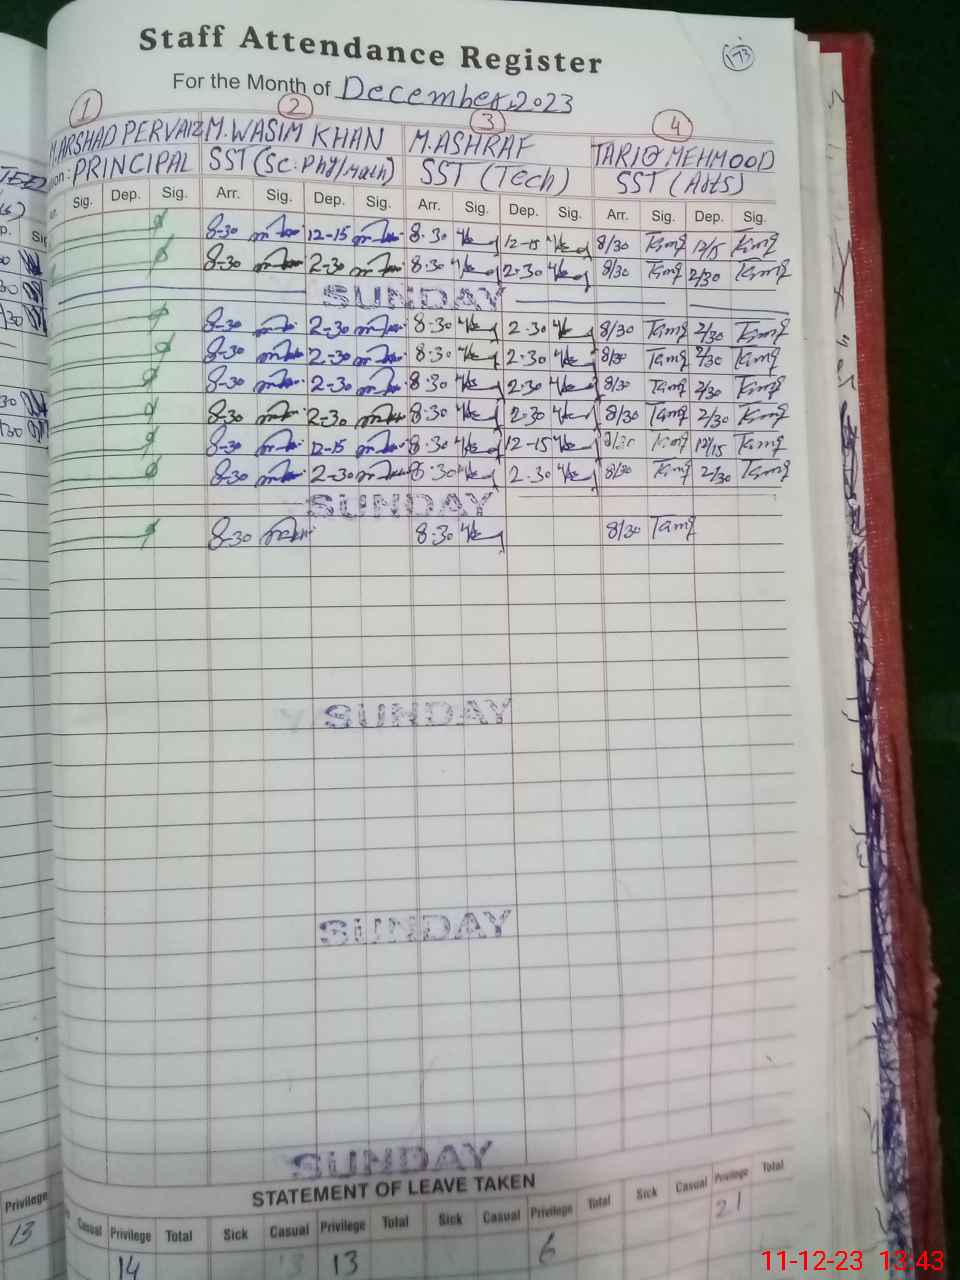 Staff Attendance Register
173
For the Month of December, 2023
1 2 3 4
M. ARSHAD PERVAIZ M. WASIM KHAN M. ASHRAF TARIQ MEHMOOD
PRINCIPAL SST (Sc: Phy/Math) SST (Tech) SST (Arts)
Sig. Dep. Sig. Arr. Sig. Dep. Sig. Arr. Sig. Dep. Sig. Arr. Sig. Dep. Sig.
8-30 12-15 8.30 12-15 8/30 12/15
8-30 2-30 8.30 2.30 8/30 2/30
SUNDAY
8-30 2-30 8.30 2.30 8/30 2/30
8-30 2-30 8.30 2.30 8/30 2/30
8-30 2-30 8.30 2.30 8/30 2/30
8-30 2-30 8.30 2.30 8/30 2/30
8-30 12-15 8.30 12-15 8/30 12/15
8-30 2-30 8.30 2.30 8/30 2/30
SUNDAY
8-30 8.30 8/30
SUNDAY
SUNDAY
SUNDAY
STATEMENT OF LEAVE TAKEN
Privilege Casual Privilege Total Sick Casual Privilege Total Sick Casual Privilege Total Sick Casual Privilege Total
13 14 13 13 6 21
11-12-23 13:43